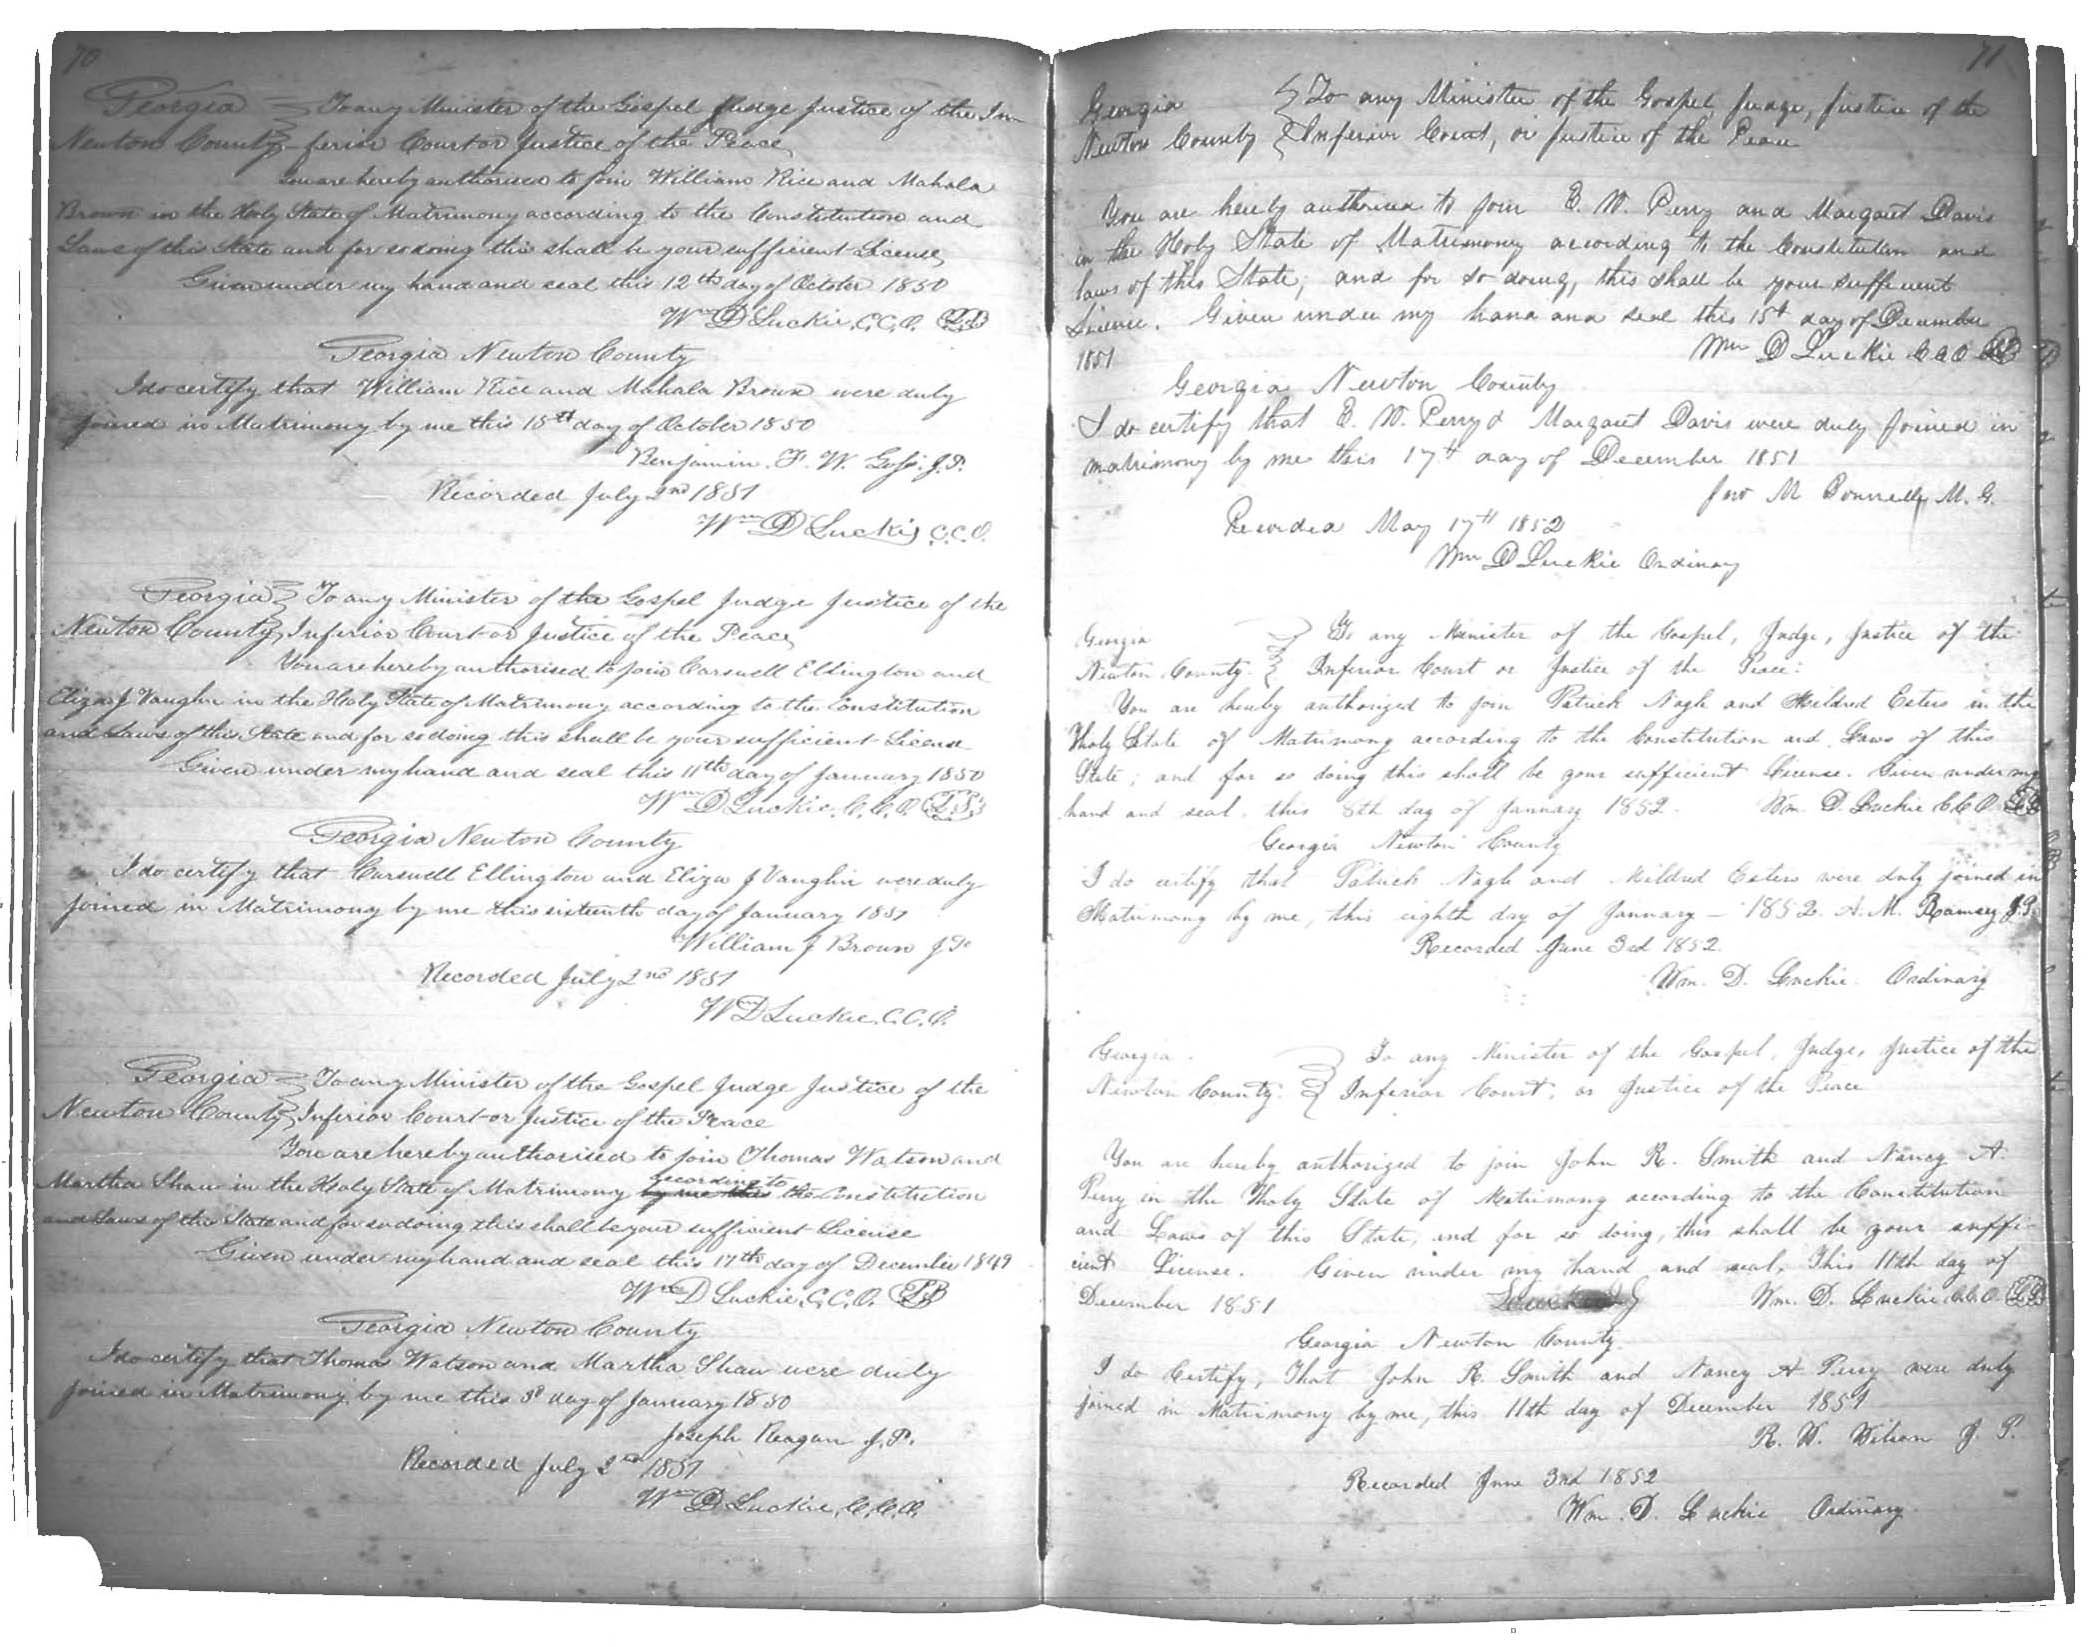 70
Georgia To any Minister of the Gospel Judge Justice of the In-
Newton County ferior Court or Justice of the Peace
You are hereby authorised to join William Rice and Mahala
Brown in the Holy State of Matrimony according to the Constitution and
Laws of this State and for so doing this shall be your sufficient License
Given under my hand and seal this 12th day of October 1850
Wm D Luckie, C.C.O. LS
Georgia Newton County
I do certify that William Rice and Mahala Brown were duly
joined in Matrimony by me this 15th day of October 1850
Benjamin. F. W. J.P.
Recorded July 2nd 1851
Wm D Luckie C.C.O.
Georgia To any Minister of the Gospel Judge Justice of the
Newton County Inferior Court or Justice of the Peace
You are hereby authorised to join Carswell Ellington and
Eliza J Vaughn in the Holy State of Matrimony according to the Constitution
and Laws of this State and for so doing this shall be your sufficient License
Given under my hand and seal this 11th day of January 1850
Wm D Luckie, C.C.O. L.S.
Georgia Newton County
I do certify that Carswell Ellington and Eliza J Vaughn were duly
joined in Matrimony by me this sixteenth day of January 1851
William J Brown J.P.
Recorded July 2nd 1851
Wm D Luckie. C.C.O.
Georgia To any Minister of the Gospel Judge Justice of the
Newton County Inferior Court or Justice of the Peace
You are hereby authorised to join Thomas Watson and
Martha Shaw in the Holy State of Matrimony according to the Constitution
and Laws of the State and for so doing this shall be your sufficient License
Given under my hand and seal this 17th day of December 1849
Wm D Luckie, C.C.O. LS
Georgia Newton County
I do certify that Thomas Watson and Martha Shaw were duly
joined in Matrimony by me this 3d day of January 1850
Joseph Reagan J.P.
Recorded July 2nd 1851
Wm D Luckie, C.C.O.
71
Georgia To any Minister of the Gospel, Judge, Justice of the
Newton County Inferior Court, or Justice of the Peace
You are hereby authorized to join E. W. Perry and Margaret Davis
in the Holy State of Matrimony according to the Constitution and
laws of this State, and for so doing, this shall be your sufficient
License. Given under my hand and seal this 15t day of December
1851 Wm D Luckie C C O LS
Georgia Newton County
I do certify that E. W. Perry & Margaret Davis were duly joined in
matrimony by me this 17th day of December 1851
Jno M Bonnell, M. G.
Recorded May 17th 1852
Wm D Luckie Ordinary
Georgia To any Minister of the Gospel, Judge, Justice of the
Newton County. Inferior Court or Justice of the Peace:
You are hereby authorized to join Patrick Nagle and Mildred Esters in the
Holy State of Matrimony according to the Constitution and Laws of this
State; and for so doing this shall be your sufficient License. Given under my
hand and seal. this 8th day of January 1852. Wm. D. Luckie C.C.O. LS
Georgia Newton County
I do certify that Patrick Nagle and Mildred Esters were duly joined in
Matrimony by me, this eighth day of January - 1852. A. M. Ramsey J.P.
Recorded June 3rd 1852.
Wm. D. Luckie. Ordinary
Georgia. To any Minister of the Gospel, Judge, Justice of the
Newton County. Inferior Court, or Justice of the Peace
You are hereby authorized to join John R. Smith and Nancy A.
Perry in the Holy State of Matrimony according to the Constitution
and Laws of this State, and for so doing, this shall be your suffi-
cient License. Given under my hand and seal, This 11th day of
December 1851 Wm. D. Luckie C.C.O. LS
Georgia Newton County.
I do Certify, That John R. Smith and Nancy A Perry were duly
joined in Matrimony by me, this 11th day of December 1851
R. W. Wilson J. P.
Recorded June 3rd 1852
Wm. D. Luckie Ordinary.